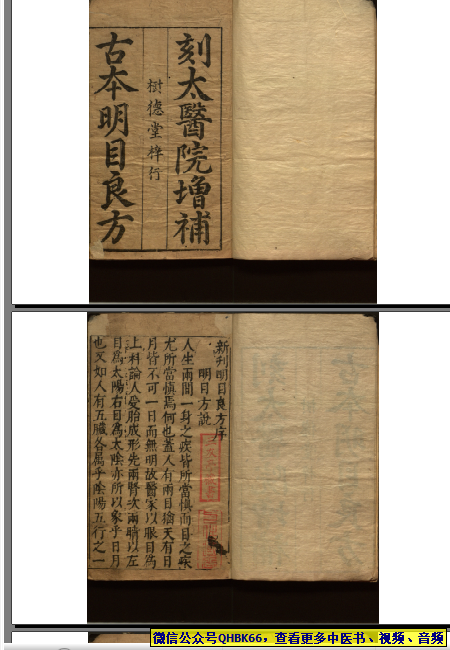 刻太醫院增補
樹德堂梓行
古本明目良方
新刊明目良方序
明目方說
人生兩間一身之疾皆所當慎而目之疾
尤所當慎焉何也蓋人有兩目猶天有日
月皆不可一日而無明故醫家以眼目為
上科論人受胎成形先兩腎次兩睛以左
目為太陽右目為太陰亦所以象乎日月
也又如人有五臟各屬乎陰陽五行之一
微信公众号QHBK66，查看更多中医书、视频、音频